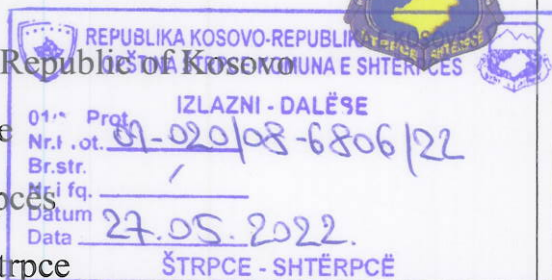 REPUBLIKA KOSOVO-REPUBLIKA E KOSOVËS
Republic of Kosovo
OPŠTINA ŠTRPCE-KOMUNA E SHTËRPCËS
IZLAZNI - DALËSE
Prot.
Nr. Prot. 01-020/08-6806/22
Br.str.
Nr.i fq. /
Datum
Data 27.05.2022.
ŠTRPCE - SHTËRPCË